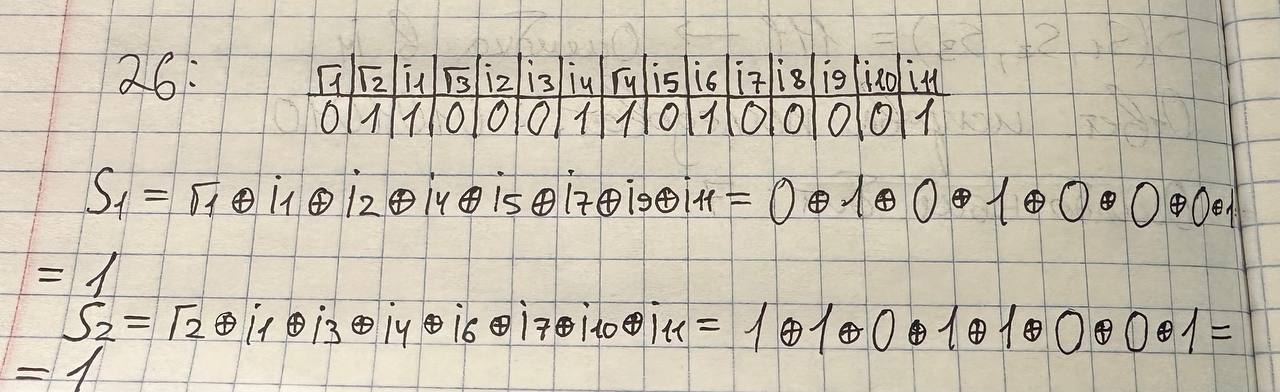 26:
r1 r2 i1 r3 i2 i3 i4 r4 i5 i6 i7 i8 i9 i10 i11
0 1 1 0 0 0 1 1 0 1 0 0 0 0 1
S1 = r1 ⊕ i1 ⊕ i2 ⊕ i4 ⊕ i5 ⊕ i7 ⊕ i9 ⊕ i11 = 0 ⊕ 1 ⊕ 0 ⊕ 1 ⊕ 0 ⊕ 0 ⊕ 0 ⊕ 1
= 1
S2 = r2 ⊕ i1 ⊕ i3 ⊕ i4 ⊕ i6 ⊕ i7 ⊕ i10 ⊕ i11 = 1 ⊕ 1 ⊕ 0 ⊕ 1 ⊕ 1 ⊕ 0 ⊕ 0 ⊕ 1 =
= 1